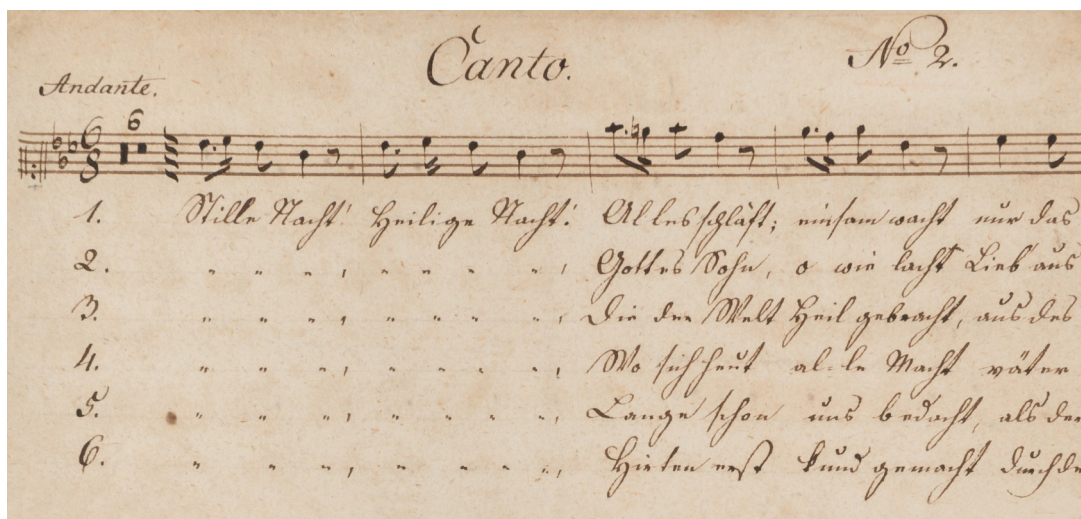 Canto.
No 2.
Andante.
6
6
8
1. Stille Nacht! Heilige Nacht! Alles schläft; einsam wacht nur das
2. " " " , " " " " , Gottes Sohn, o wie lacht Lieb' aus
3. " " " , " " " " , Die der Welt Heil gebracht, aus des
4. " " " , " " " " , Wo sich heut al-le Macht väter
5. " " " , " " " " , Lange schon uns bedacht, als der
6. " " " , " " " " , Hirten erst kund gemacht durch de